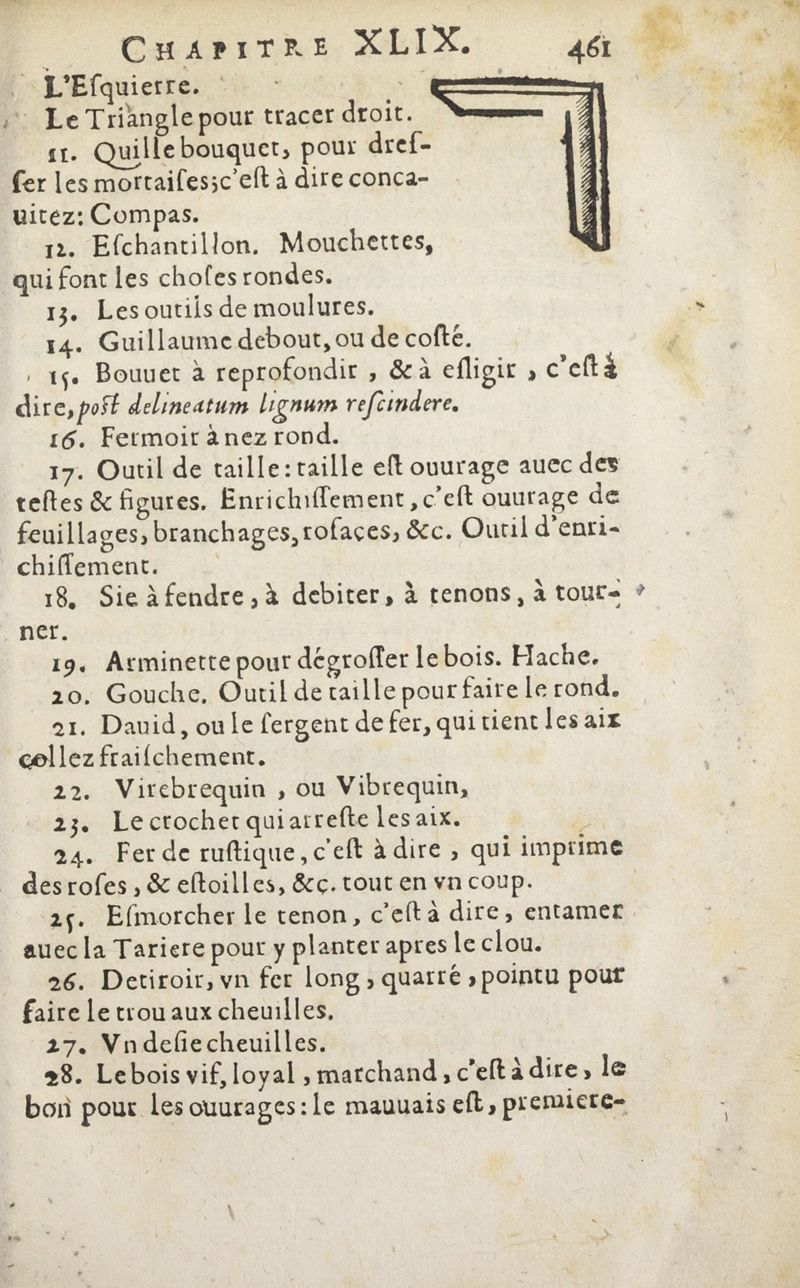 CHAPITRE XLIX. 461
L'Eſquierre.
Le Triangle pour tracer droit.
11. Quille bouquet, pour dreſ-
ſer les mortaiſes;c'eſt à dire conca-
uitez: Compas.
12. Eſchantillon. Mouchettes,
qui font les choſes rondes.
13. Les outils de moulures.
14. Guillaume debout, ou de coſté.
15. Bouuet à reprofondir , & à eſligir , c'eſt à
dire, poſt delineatum lignum reſcindere.
16. Fermoir à nez rond.
17. Outil de taille: taille eſt ouurage auec des
teſtes & figures. Enrichiſſement, c'eſt ouurage de
feuillages, branchages, roſaçes, &c. Outil d'enri-
chiſſement.
18. Sie à fendre, à debiter, à tenons, à tour-
ner.
19. Arminette pour dégroſſer le bois. Hache.
20. Gouche. Outil de taille pour faire le rond.
21. Dauid, ou le ſergent de fer, qui tient les aix
collez fraiſchement.
22. Virebrequin , ou Vibrequin,
23. Le crochet qui arreſte les aix.
24. Fer de ruſtique, c'eſt à dire , qui imprime
des roſes, & eſtoilles, &ç. tout en vn coup.
25. Eſmorcher le tenon, c'eſt à dire, entamer
auec la Tariere pour y planter apres le clou.
26. Detiroir, vn fer long, quarré, pointu pour
faire le trou aux cheuilles.
27. Vn defiecheuilles.
28. Le bois vif, loyal, marchand, c'eſt à dire, le
bon pour les ouurages: le mauuais eſt, premiere-